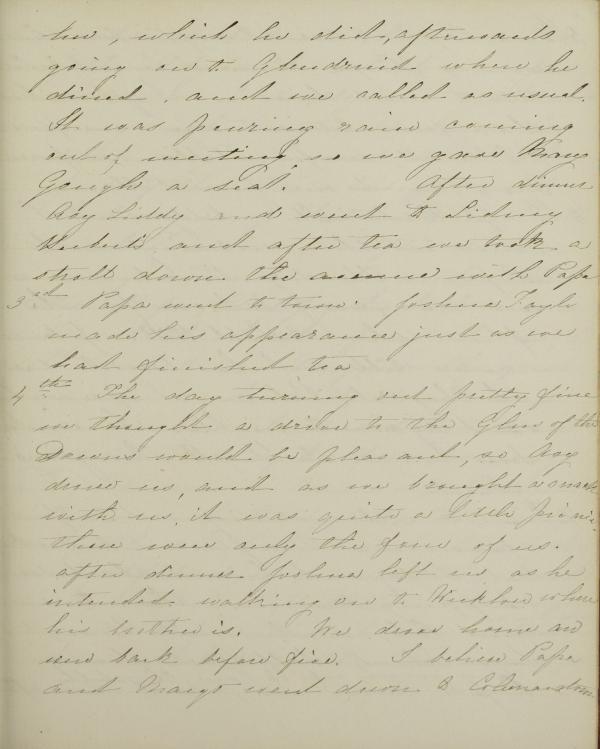 her, which he did, afterwards
going on to Glendruid where he
dined, and we called as usual.
It was pouring rain coming
out of meeting, so we gave Margt
Gough a seat. After dinner
Liddy and went to Sidney
Herbert's and after tea we took a
stroll down the avenue with Papa
3rd Papa went to town. Joshua
made his appearance just as we
had finished tea
4th The day turning out pretty fine
we thought a drive to the Glen of the
Downs would be pleasant, so
drove us, and as we brought a snack
with us, it was quite a little picnic.
there were only the four of us.
After dinner Joshua left us as he
intended walking on to Wicklow where
his brother is. We drove home and
were back before five. I believe Papa
and Margt went down to